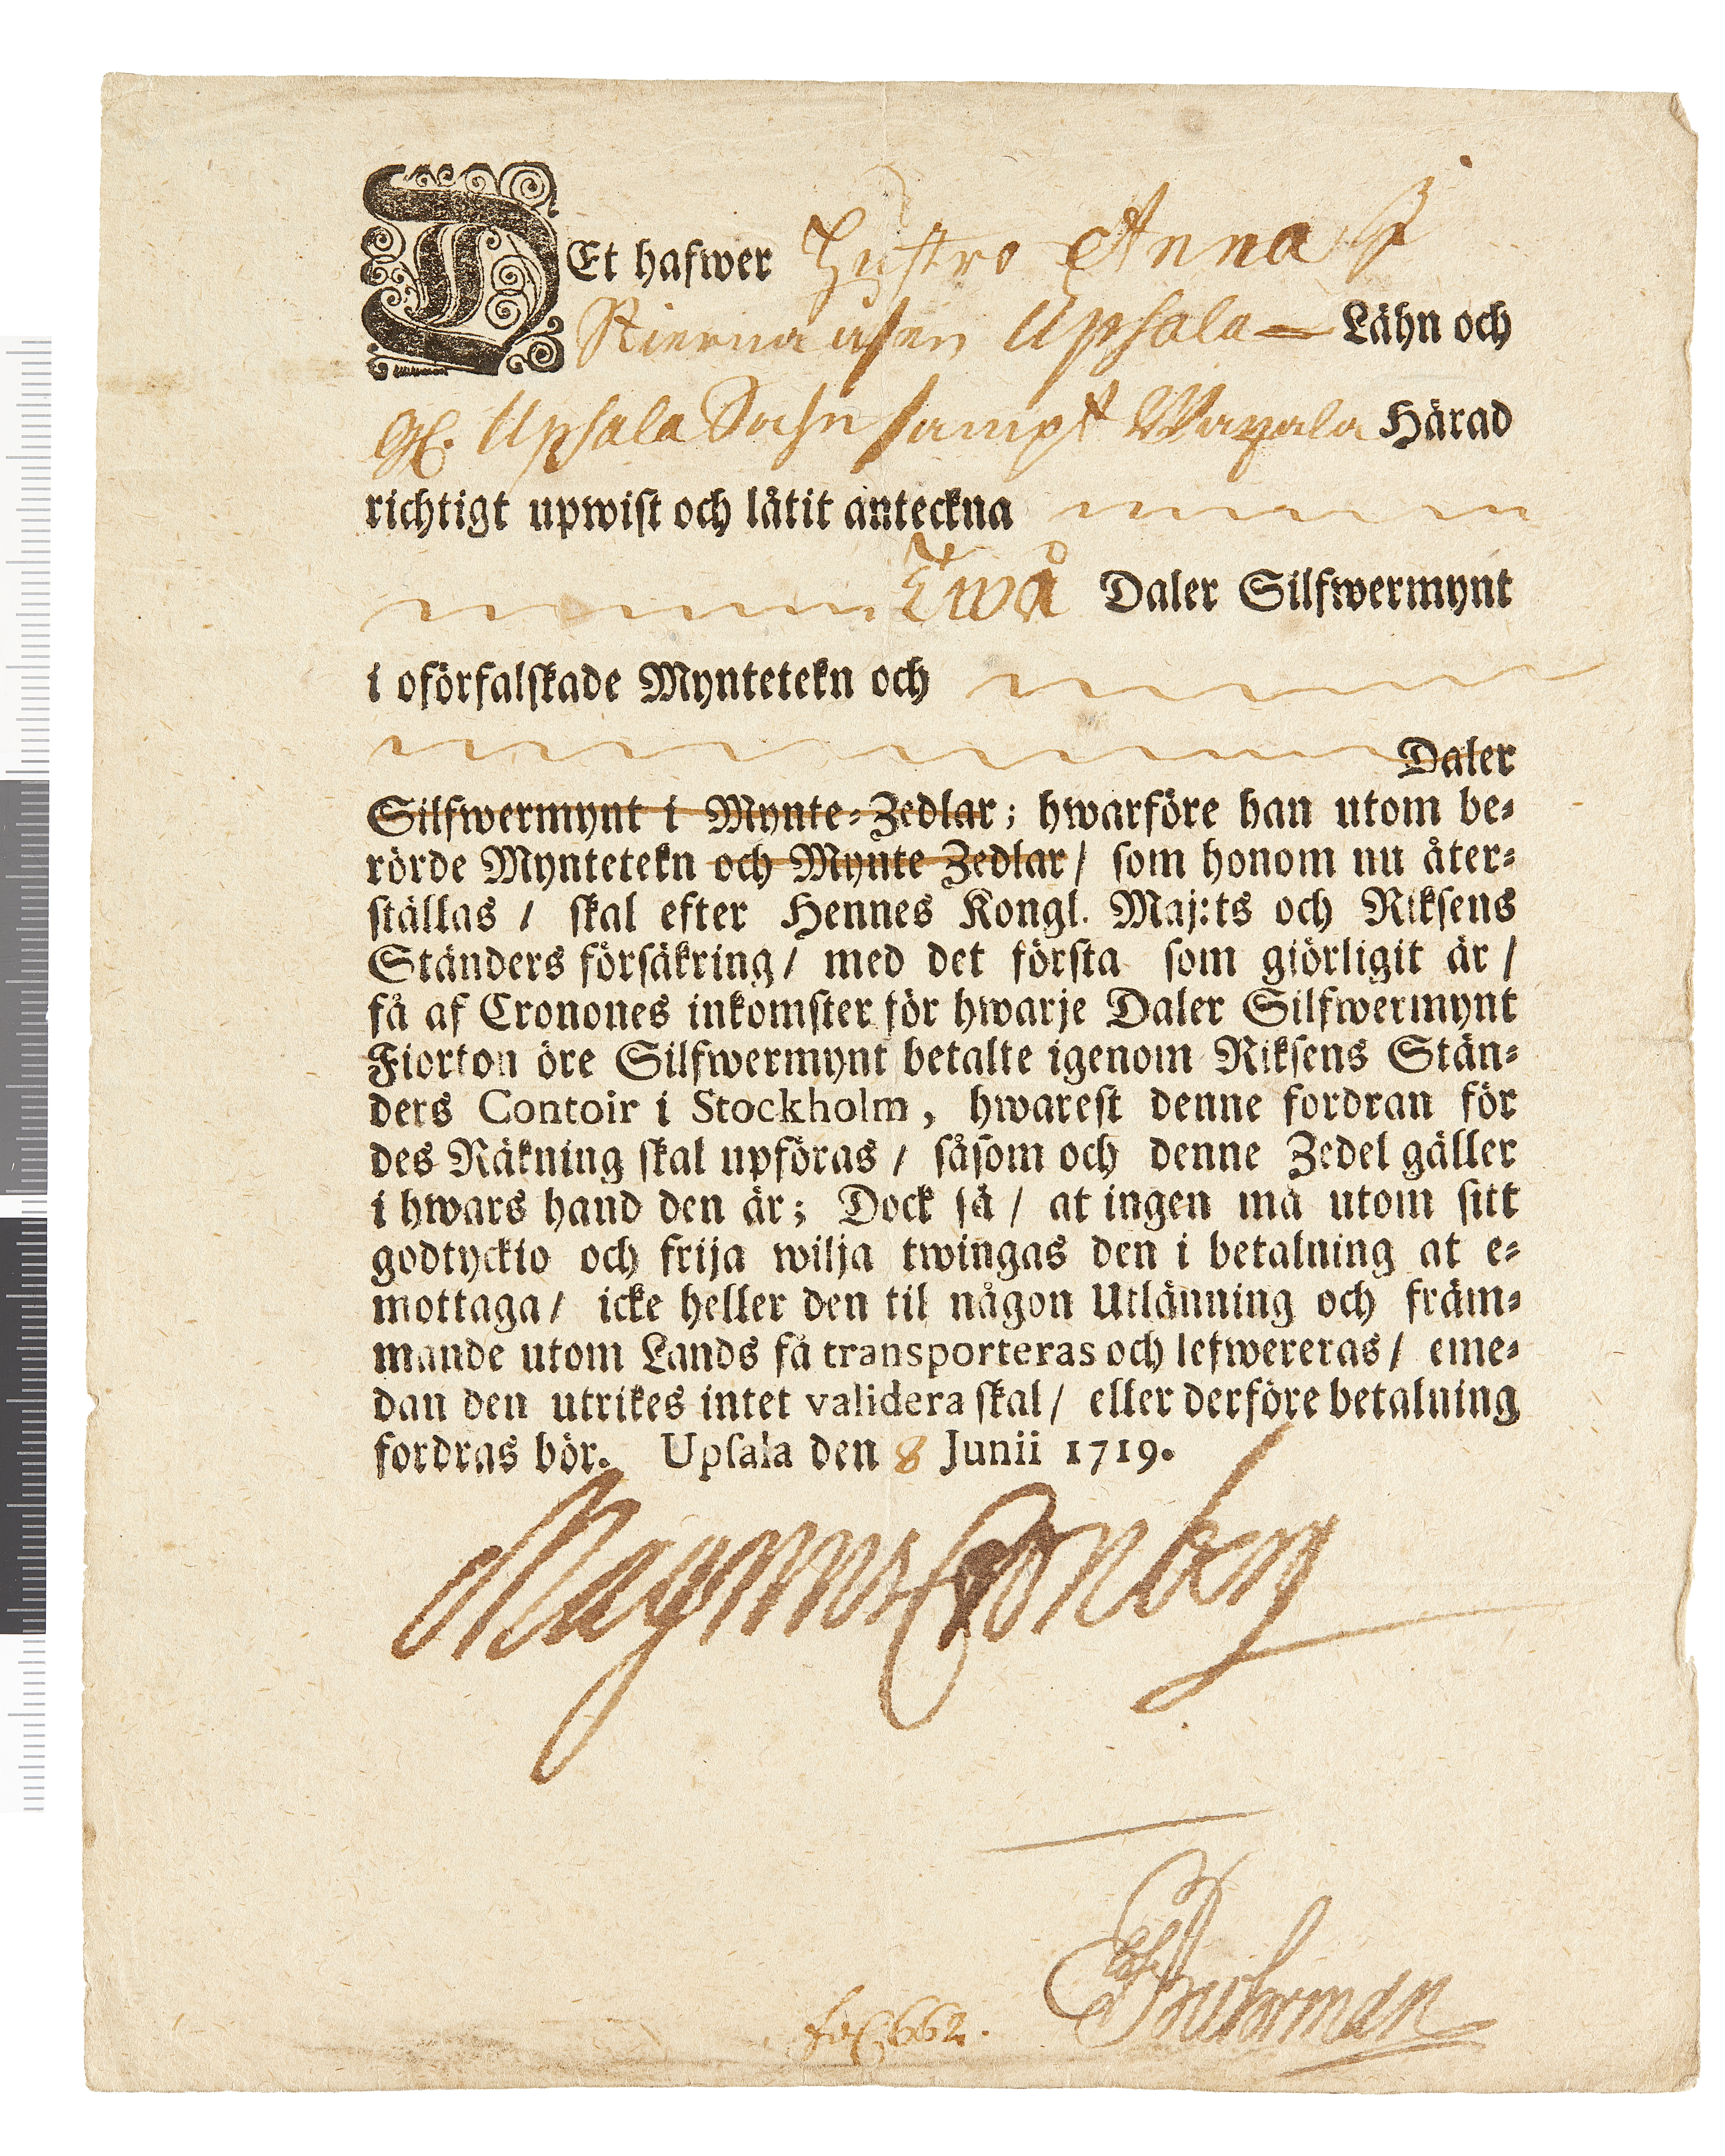 DEt hafwer Hustro Anna I
Upsala Lähn och
Gl. Upsala Sochn sampt Waxala Härad
richtigt upwist och låtit anteckna
Twå Daler Silfwermynt
i oförfalskade Myntetekn och
Daler
Silfwermynt i Mynte-Zedlar; hwarföre han utom be-
rörde Myntetekn och Mynte Zedlar/ som honom nu åter-
ställas / skal efter Hennes Kongl. Maj:ts och Riksens
Ständers försäkring/ med det första som giörligit är /
få af Cronones inkomster för hwarje Daler Silfwermynt
Fiorton öre Silfwermynt betalte igenom Riksens Stän-
ders Contoir i Stockholm, hwarest denne fordran för
des Räkning skal upföras / såsom och denne Zedel gäller
i hwars hand den är; Dock så / at ingen må utom sitt
godtyckio och frija wilja twingas den i betalning at e-
mottaga/ icke heller den til någon Utlänning och främ-
mande utom Lands få transporteras och lefwereras/ eme-
dan den utrikes intet validera skal/ eller derföre betalning
fordras bör. Upsala den 8 Junii 1719.
Magnus Cronberg
Buhrman
fol 662.